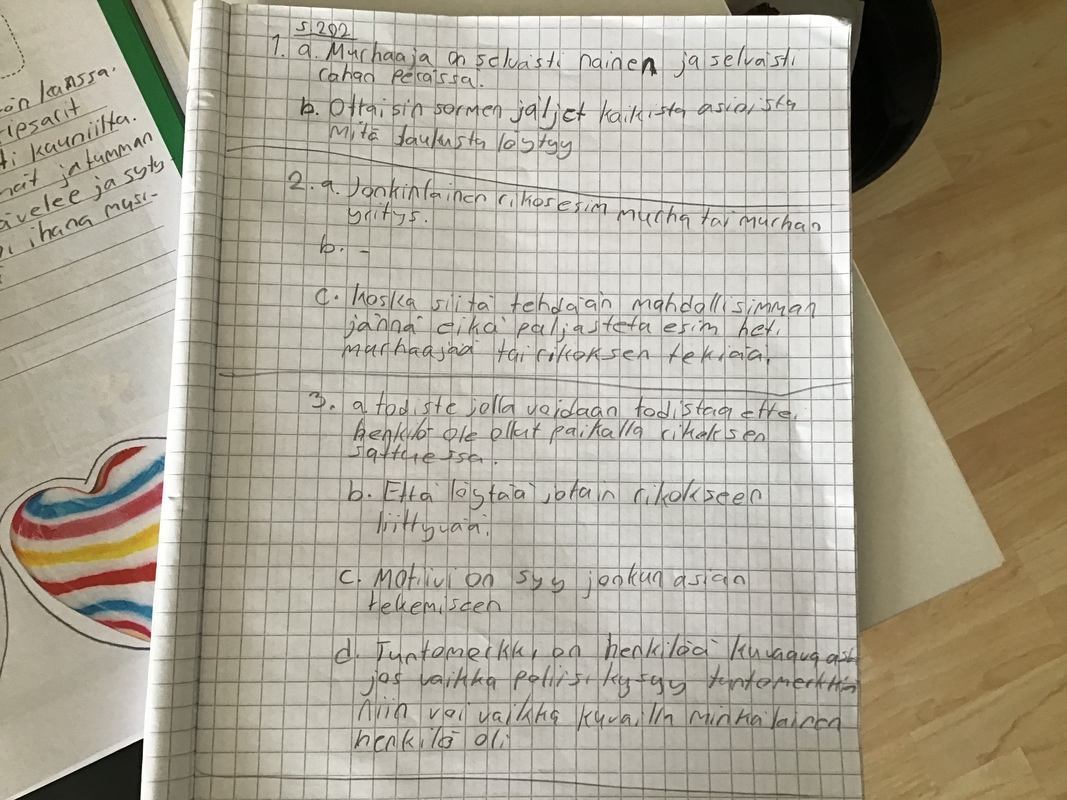 än kanssa.
ripsarit
ti kauniilta.
nait ja tumman
ävelee ja syty
ihana musi-
s.202
1. a. Murhaaja on selvästi nainen ja selvästi
rahan perässä.
b. Ottaisin sormen jäljet kaikista asioista
mitä taulusta löytyy
2. a. Jonkinlainen rikos esim murha tai murhan
yritys.
b. -
c. koska siitä tehdään mahdollisimman
jännä eikä paljasteta esim heti
murhaajaa tai rikoksen tekiää.
3. a todiste jolla voidaan todistaa ettei
henkilö ole ollut paikalla rikoksen
sattuessa.
b. Että löytää jotain rikokseen
liittyvää.
c. Motiivi on syy jonkun asian
tekemiseen
d. Tuntomerkki on henkilöä kuvaava
jos vaikka poliisi kysyy
niin voi vaikka kuvailla minkälainen
henkilö oli